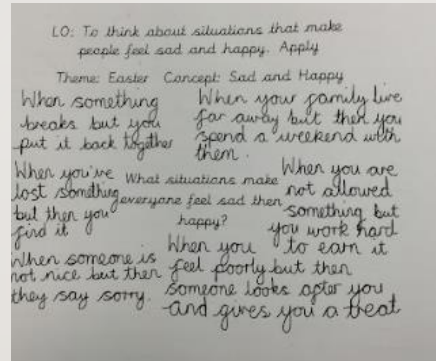 LO: To think about situations that make
people feel sad and happy. Apply
Theme: Easter Concept: Sad and Happy
When something
breaks but you
put it back together
When your family live
far away but then you
spend a weekend with
them.
When you've
lost something
but then you
find it
What situations make
everyone feel sad then
happy?
When you are
not allowed
something but
you work hard
to earn it
When someone is
not nice but then
they say sorry.
When you
feel poorly but then
someone looks after you
and gives you a treat